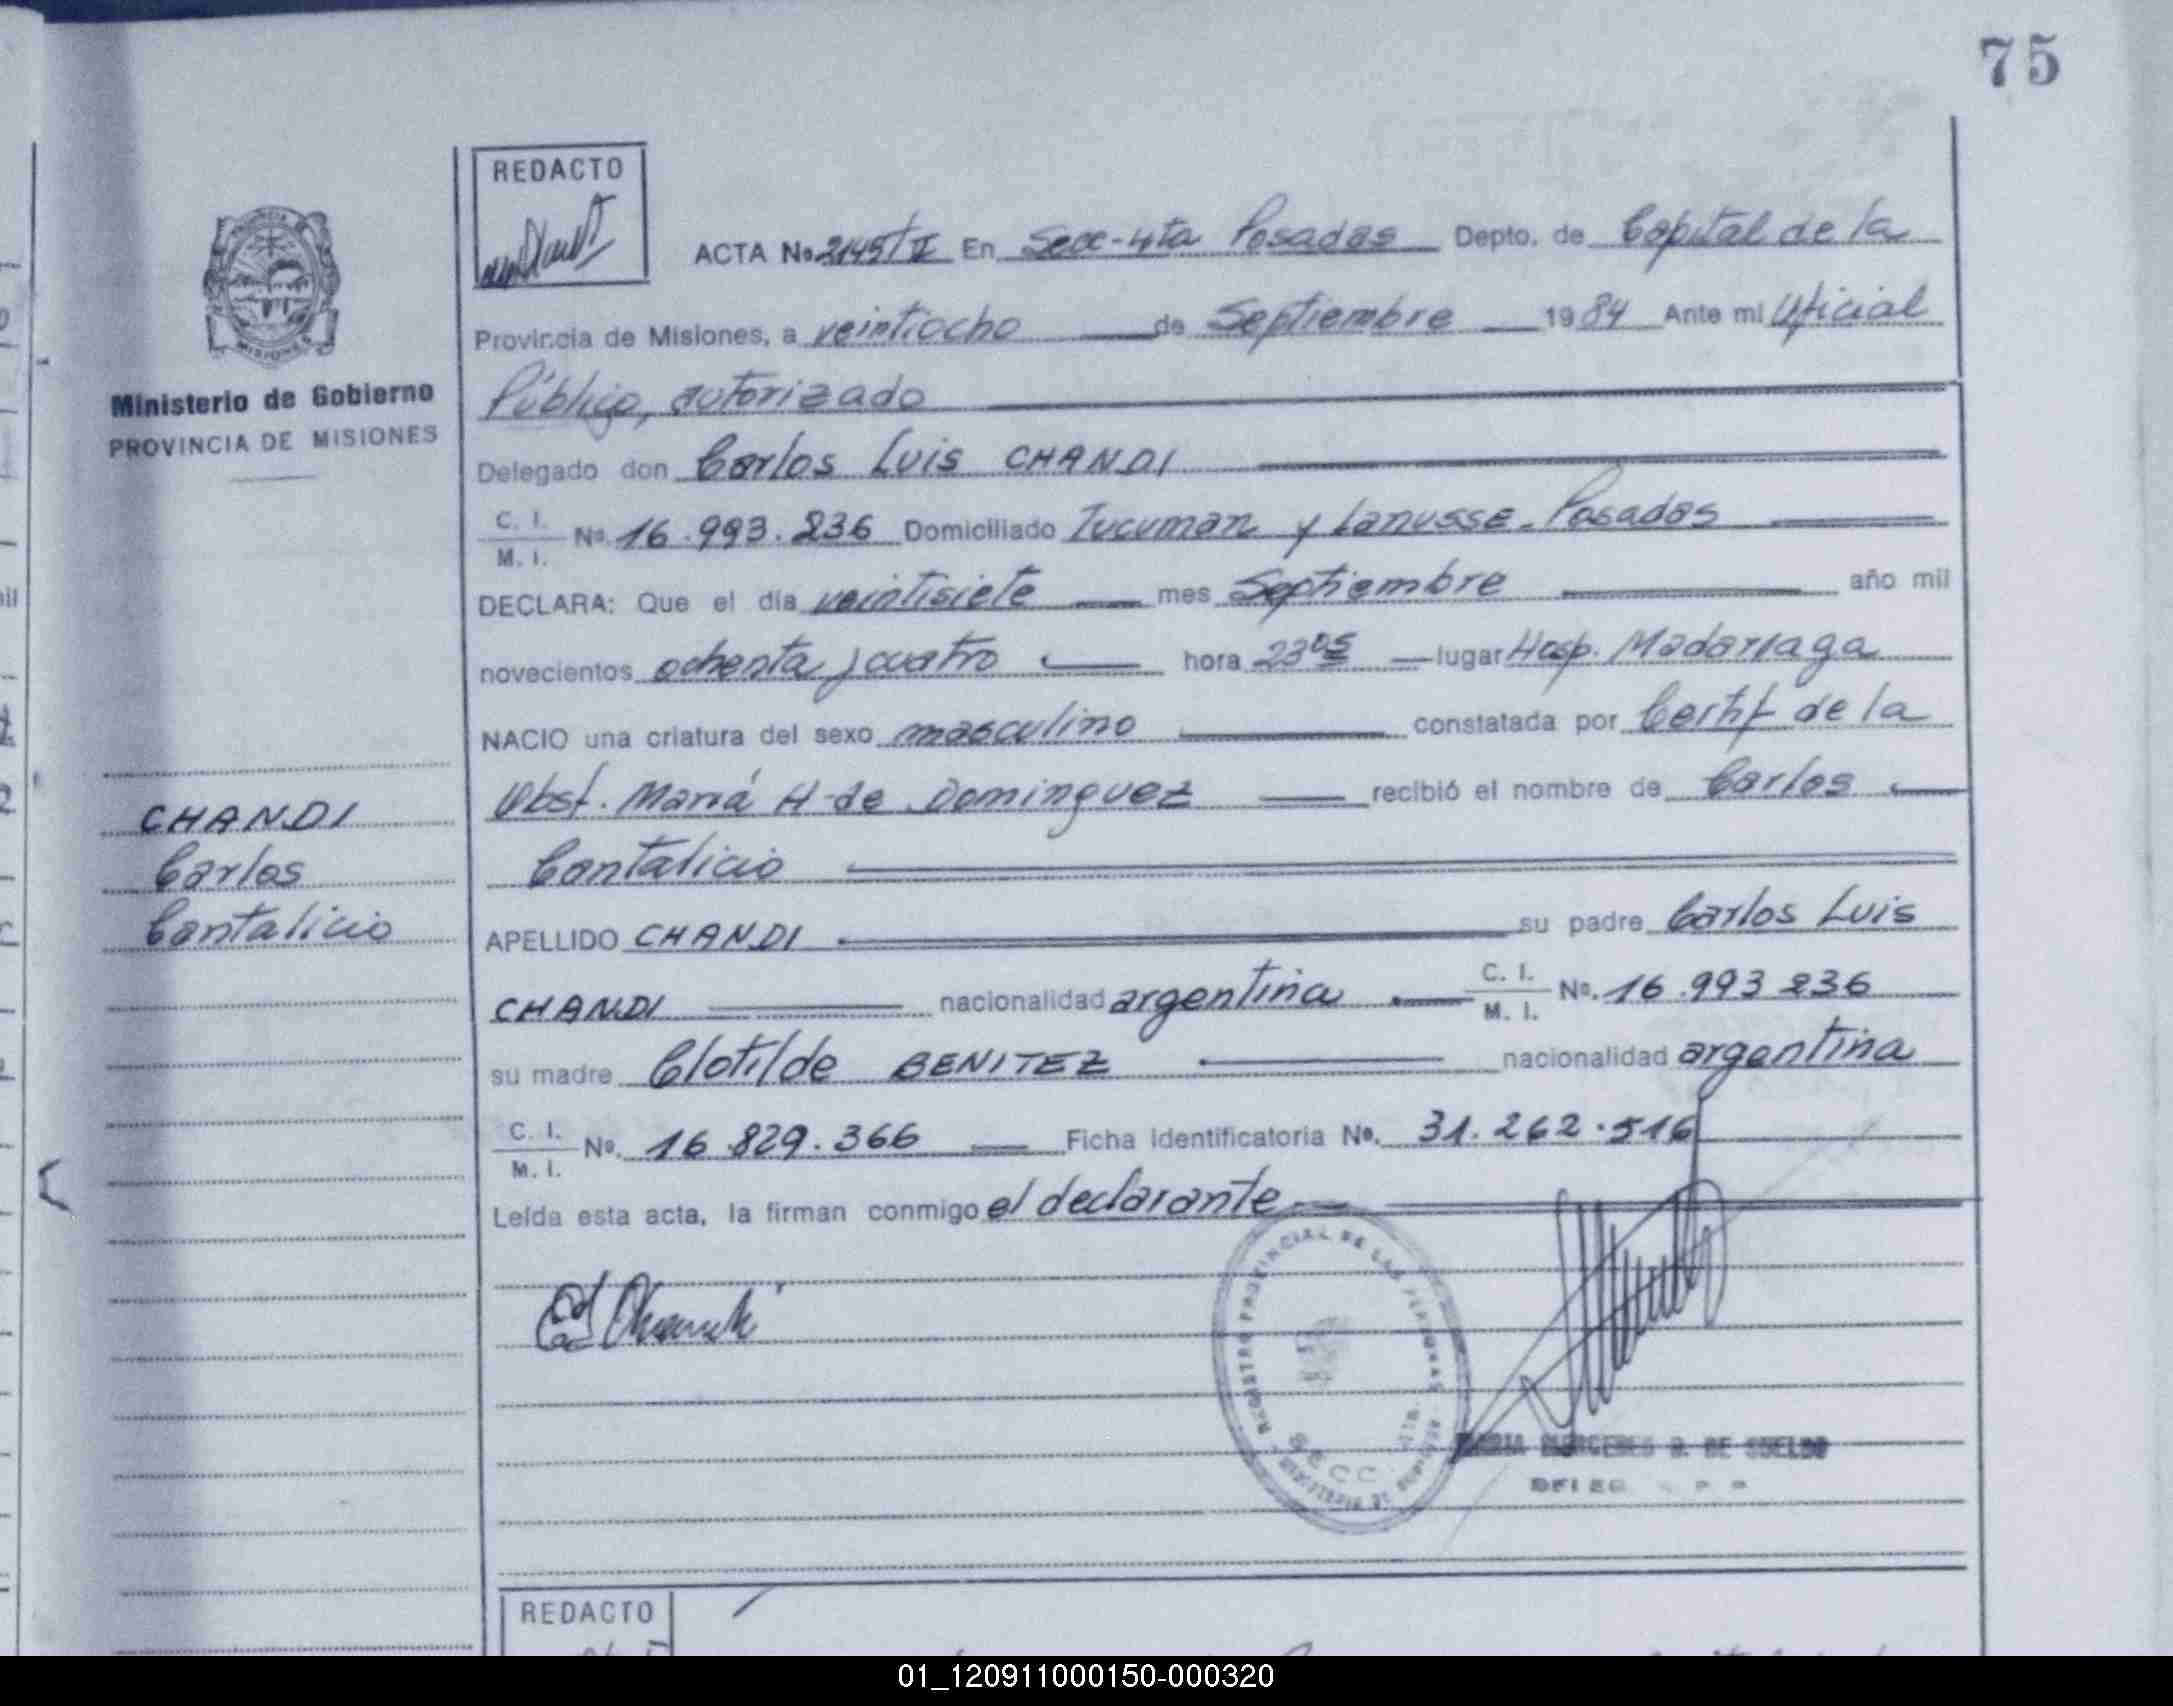 75
REDACTO
ACTA No 2145/II En Secc-4ta Posadas Depto. de Capital de la
Provincia de Misiones, a veintiocho de Septiembre 1984 Ante mi Oficial
Público, autorizado
Delegado don Carlos Luis CHANDI
C. I. M. I. No. 16.993.236 Domiciliado Tucuman y Lanusse - Posadas
DECLARA: Que el día veintisiete mes Septiembre año mil
novecientos ochenta y cuatro hora 23 05 lugar Hosp. Madariaga
NACIO una criatura del sexo masculino constatada por Certif de la
Obst. María H de Dominguez recibió el nombre de Carlos
Cantalicio
APELLIDO CHANDI su padre Carlos Luis
CHANDI nacionalidad argentina C. I. M. I. No. 16.993 236
su madre Clotilde BENITEZ nacionalidad argentina
C. I. M. I. No. 16.829.366 Ficha identificatoria No. 31.262.516
Leída esta acta, la firman conmigo el declarante
PROVINCIA DE MISIONES
Ministerio de Gobierno
PROVINCIA DE MISIONES
CHANDI
Carlos
Cantalicio
REGISTRO PROVINCIAL DE LAS PERSONAS
SECC
MINISTERIO DE GOBIERNO
MARIA MERCEDES DE SUELDO
REDACTO
01_120911000150-000320